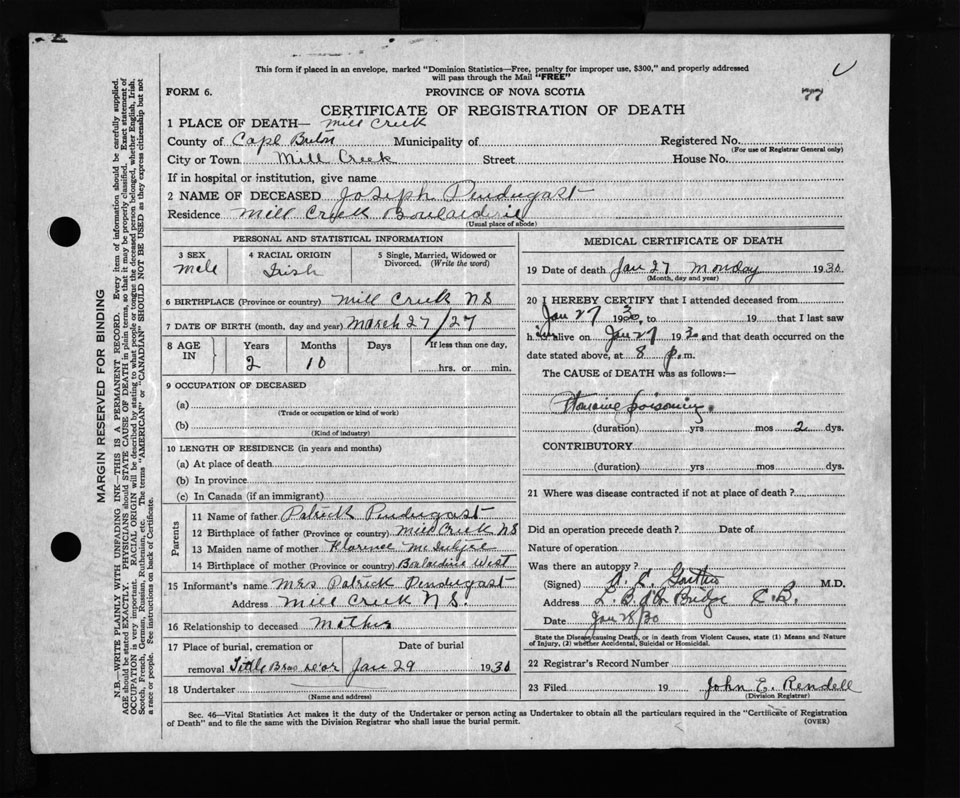 This form if placed in an envelope, marked "Dominion Statistics—Free, penalty for improper use, $300," and properly addressed
will pass through the Mail "FREE"
FORM 6.
PROVINCE OF NOVA SCOTIA
77
CERTIFICATE OF REGISTRATION OF DEATH
1 PLACE OF DEATH— Mill Creek
County of Cape Breton Municipality of Registered No.
(For use of Registrar General only)
City or Town Mill Creek Street House No.
If in hospital or institution, give name
2 NAME OF DECEASED Joseph Pendugast
Residence Mill Creek Boularderie
(Usual place of abode)
PERSONAL AND STATISTICAL INFORMATION
3 SEX 4 RACIAL ORIGIN 5 Single, Married, Widowed or
Divorced. (Write the word)
Male Irish
6 BIRTHPLACE (Province or country) Mill Creek N S
7 DATE OF BIRTH (month, day and year) March 27/27
8 AGE IN Years Months Days If less than one day,
2 10 hrs. or min.
9 OCCUPATION OF DECEASED
(a)
(Trade or occupation or kind of work)
(b)
(Kind of industry)
10 LENGTH OF RESIDENCE (in years and months)
(a) At place of death
(b) In province
(c) In Canada (if an immigrant)
Parents
11 Name of father Patrick Pendugast
12 Birthplace of father (Province or country) Mill Creek N S
13 Maiden name of mother Florence
14 Birthplace of mother (Province or country) Boularderie West
15 Informant's name Mrs Patrick Pendugast
Address Mill Creek N S.
16 Relationship to deceased Mother
17 Place of burial, cremation or Date of burial
removal Little Bras D'or Jan 29 1930
18 Undertaker
(Name and address)
MEDICAL CERTIFICATE OF DEATH
19 Date of death Jan 27 Monday 1930
(Month, day and year)
20 I HEREBY CERTIFY that I attended deceased from
Jan 27 1930, to 19 that I last saw
him alive on Jan 27 1930 and that death occurred on the
date stated above, at 8 p.m.
The CAUSE of DEATH was as follows:—
Ptomaine poisoning.
(duration) yrs mos 2 dys.
CONTRIBUTORY
(duration) yrs mos dys.
21 Where was disease contracted if not at place of death?
Did an operation precede death? Date of
Nature of operation
Was there an autopsy?
(Signed) M.D.
Address Bridge C.B.
Date Jan 28/30
State the Disease causing Death, or in death from Violent Causes, state (1) Means and Nature
of Injury, (2) whether Accidental, Suicidal or Homicidal.
22 Registrar's Record Number
23 Filed 19 John E. Rendell
(Division Registrar)
Sec. 46—Vital Statistics Act makes it the duty of the Undertaker or person acting as Undertaker to obtain all the particulars required in the "Certificate of Registration
of Death" and to file the same with the Division Registrar who shall issue the burial permit.
(OVER)
MARGIN RESERVED FOR BINDING
N.B.—WRITE PLAINLY WITH UNFADING INK—THIS IS A PERMANENT RECORD. Every item of information should be carefully supplied.
AGE should be stated EXACTLY. PHYSICIANS should STATE CAUSE OF DEATH in plain terms, so that it may be properly classified. Exact statement of
OCCUPATION is very important. RACIAL ORIGIN will be described by stating to what people or tongue the deceased person belonged, whether English, Irish,
Scotch, French, German, Russian, Ruthenian, etc. The terms "AMERICAN" or "CANADIAN" SHOULD NOT BE USED as they express citizenship but not
a race or people. See instructions on back of Certificate.